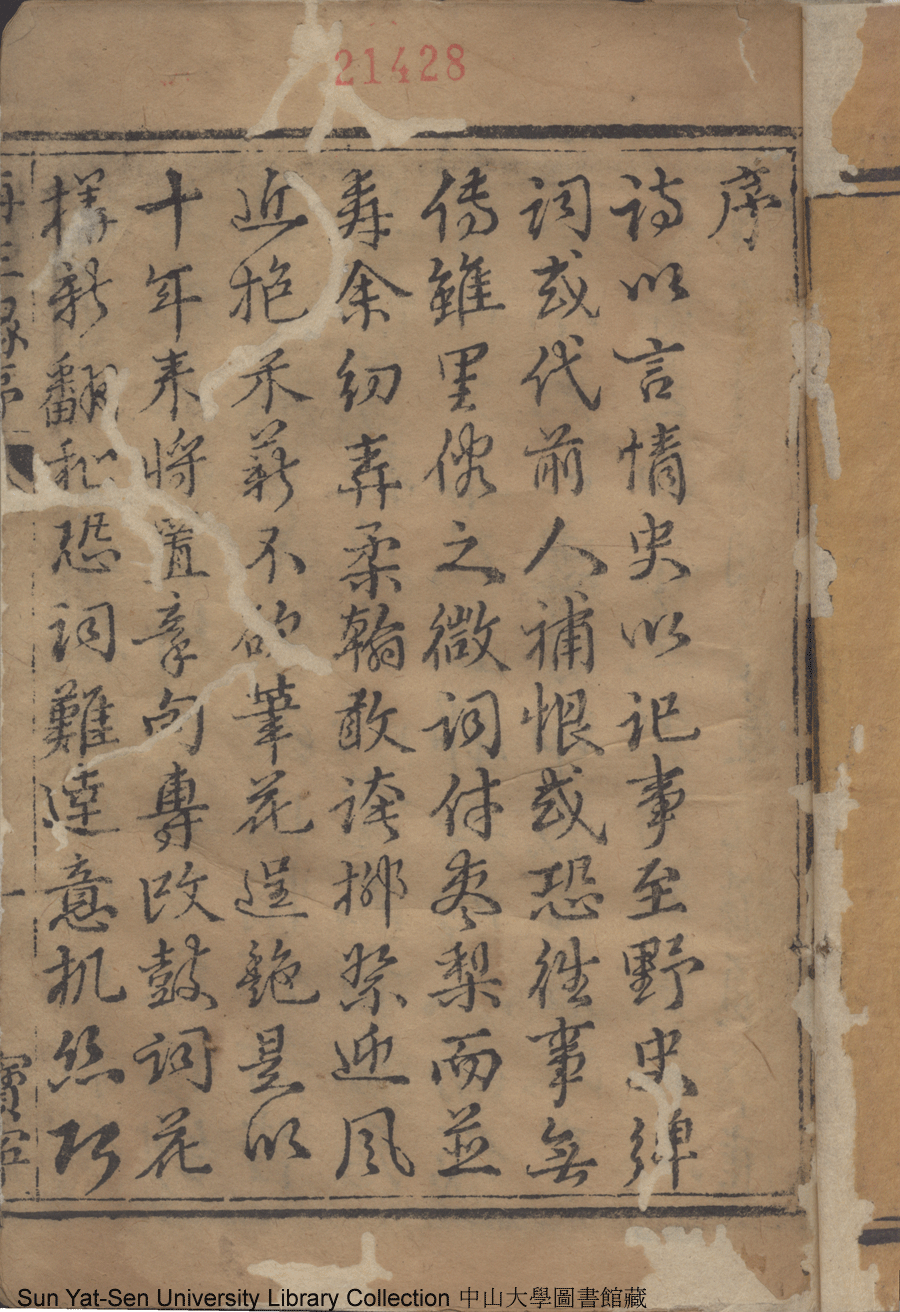 21428
序
詩以言情史以記事至野史彈
詞或代前人補恨或恐往事無
傳雖里俗之微詞付枣梨而並
壽余幼弄柔翰敢誇挪絮迎風
近抱采薪不欲筆花逞艷是以
十年来將置章句專改鼓詞花
樣新翻秪恐詞難達意机丝巧
再生緣序
一
寶
Sun Yat-Sen University Library Collection 中山大學圖書館藏